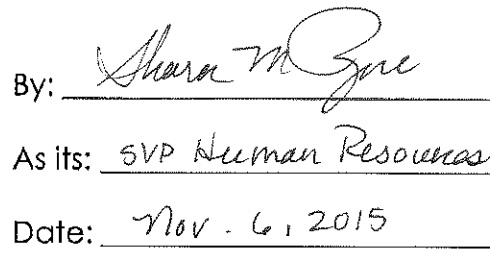 By: Sharon M
As its: SVP Human Resources
Date: Nov. 6, 2015